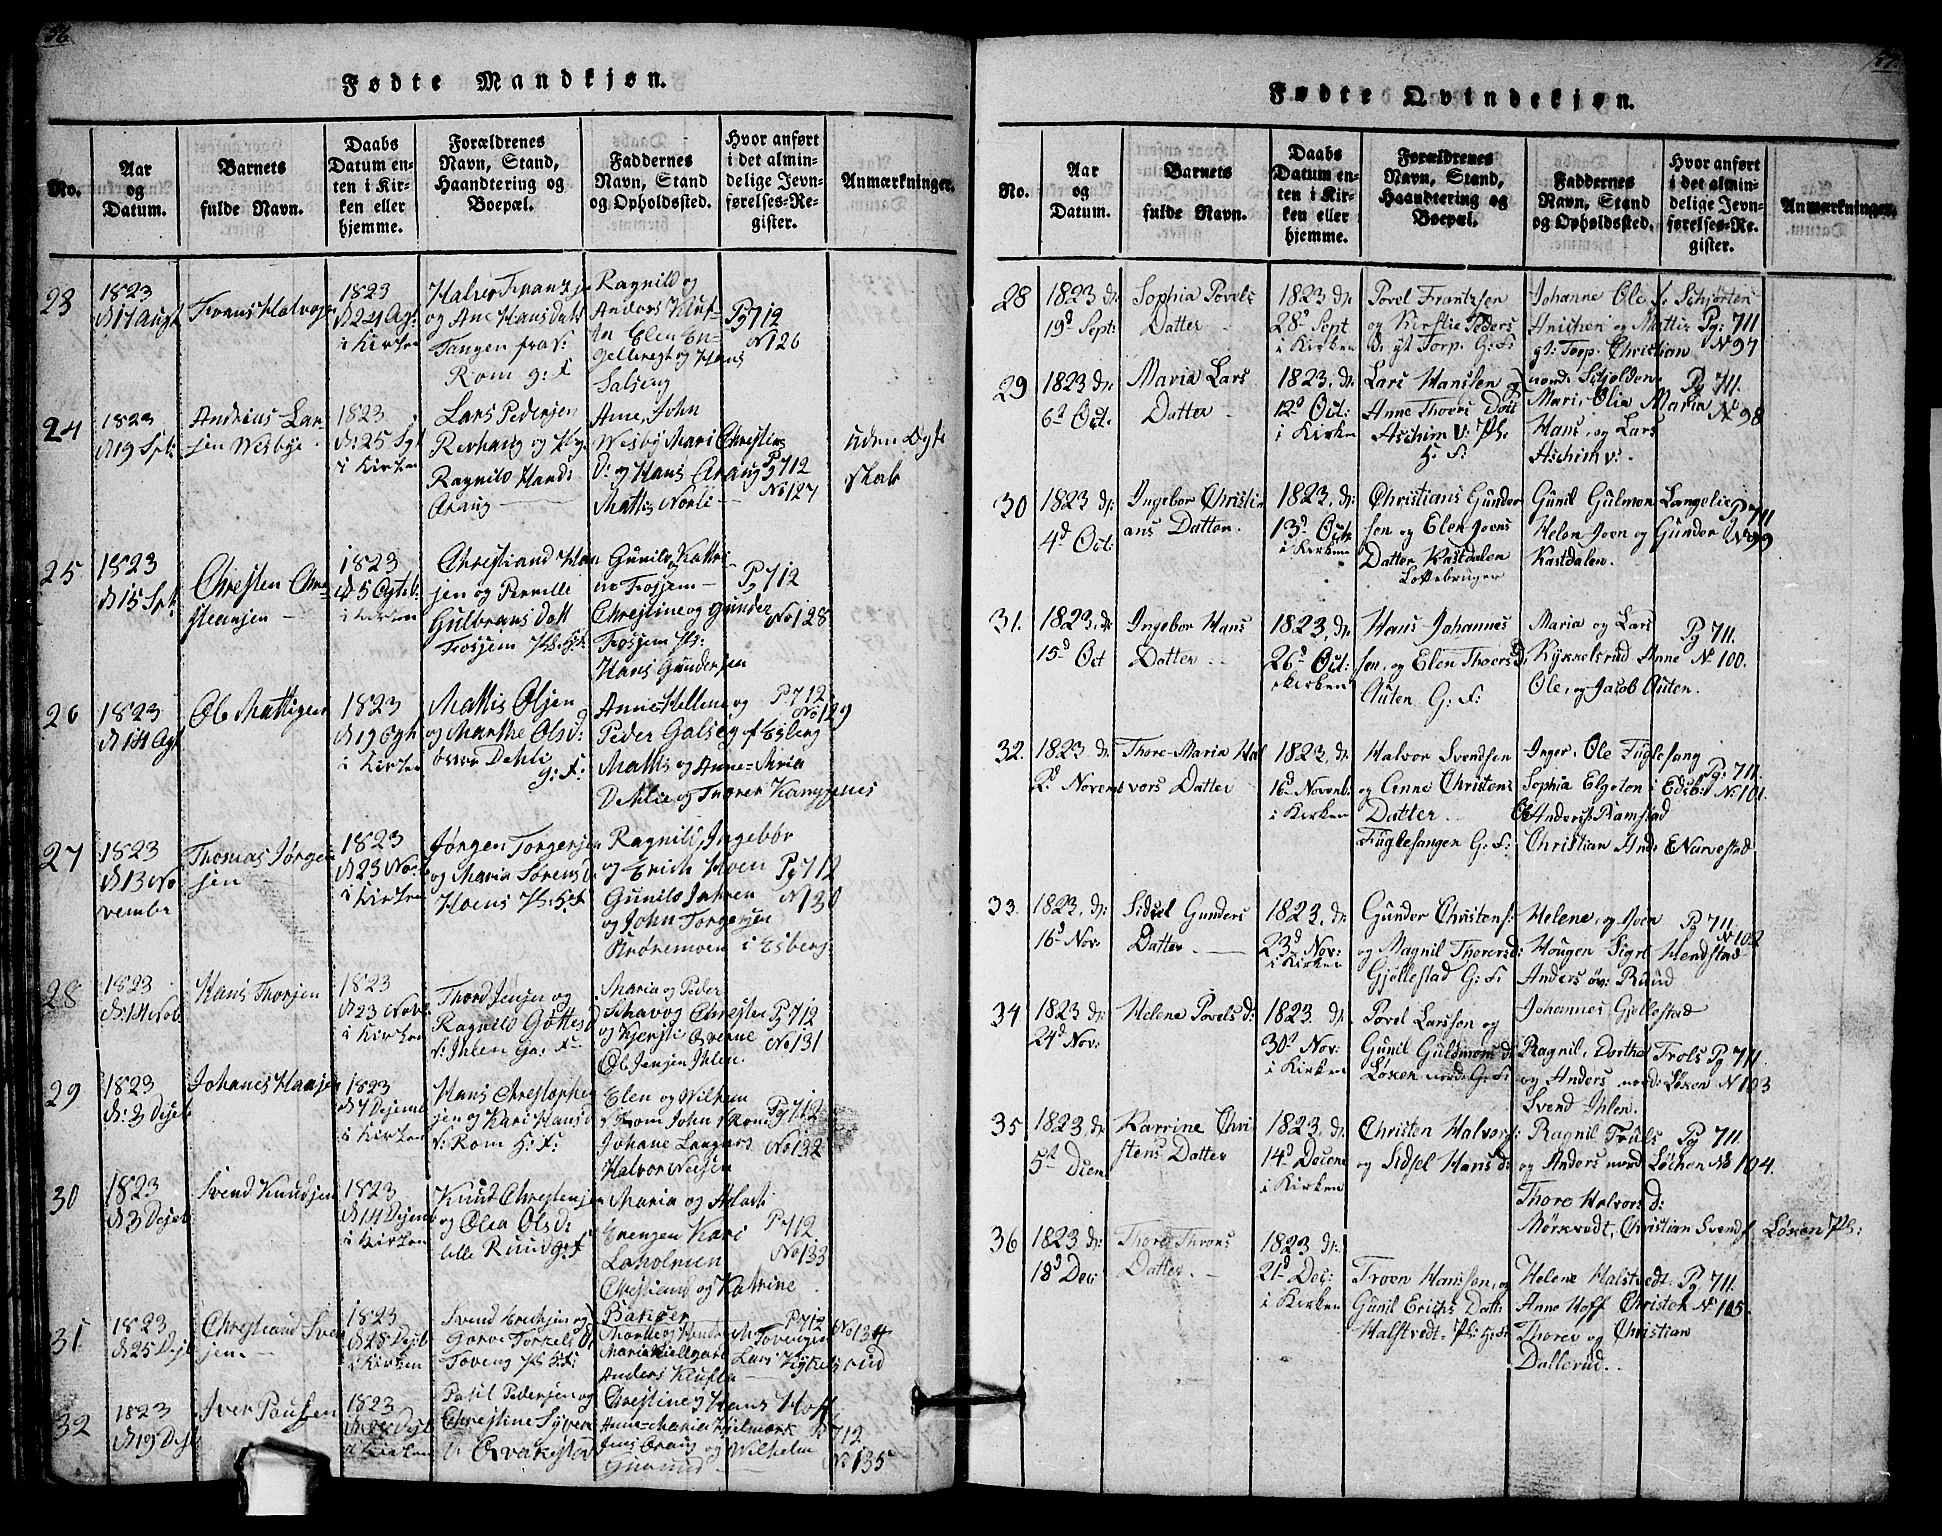 36
Fødte Mandkjøn.
No.
Aar
og
Datum.
Barnets
fulde Navn.
Daabs
Datum en-
ten i Kir-
ken eller
hjemme.
Forældrenes
Navn, Stand,
Haandtering og
Boepæl.
Faddernes
Navn, Stand
og Opholdssted.
Hvor anført
i det almin-
delige Jevn-
førelses-Re-
gister.
Anmærkninger.
23
1823
d. 17 Augt
Frans Halvors
1823
d. 24 Agt
i Kirken
Halvor Frantzs
og Ane Hansdatt
Tangen fra v:
Rom g: F
Ragnild og
Anders Kluf-
ta Elen En-
gelbregt og Hans
Salberg
Pg 712
No 126
24
1823
d. 19 Spt:
Andrias Lar
sen Wesbye
1823
d. 25 Spt
i Kirken
Lars Pedersen
Revhaug og Pg
Ragnild Hands
Oraug
Ane, John
Wesby Mari Christine
d: og Hans Oraug
Mattis Norli
Pg 712
No 127
uden Ægte
skab
25
1823
d. 15 Spt:
Chresten Chre-
steansen
1823
d. 5 Octb:
i Kirken
Chrestiand Han
sen og Pernille
Gulbrans Datt
Fossjem Ps: H: F
Gunild Kattri-
ne Fosjem
Chrestine og Gunder
Fosjem Ps:
Hans Gundersen
Pg 712
No 128
26
1823
d. 14 Agt
Ole Mattisen
1823
d. 19 Ogt
i Kirken
Mattis Olsen
og Marthe Olsd:
øvre Dehli
g: F:
Anne Hellene og
Peder Galseg af Esberg
Mattis og Anne-Maria
Dehlie og Torer Kampenes
Pg 712
No 129
27
1823
d. 13 No
vembr
Thomas Jørgen
sen
1823
d. 23 Nov:
i Kirken
Jørgen Torgersen
og Maria Sørensd:
Hoens Ps: H: F
Ragnild, Ingebør
og Erich Hoen
Gunild Jahren
og John Torgersen
Andremoen i Esberg:
Pg 712
No 130
28
1823
d. 14 Nob
Hans Thorsen
1823
d. 23 Nov:
i Kirken
Thord Jensen og
Ragnild Gottes d
v: Ihlen Ga: F:
Maria og Peder
Schavog Chresten
og Kjersti Qverne
Ole Jensen Ihlen
Pg 712
No 131
29
1823
d. 3 Deseb
Johanes Hansen
1823
d. 7 Desemb
i Kirken
Hans Chrestoppher
sen og Kari Hansd
v: Rom H: F:
Elen og Wilhem
v: Rom John v: Rom
Johane Langaas
Halvor Nilsen
Pg 712
No 132
30
1823
d. 3 Deseb
Svend Knudsen
1823
d. 14 Desemb
i Kirken
Knud Chrestensen
og Olea Olsd:
lille Ruud g: F
Maria og Aslach
Erengen Kari
Laholmen
Chrestiand og Katrine
Bakaer
Pg 712
No 133
31
1823
d. 25 Deseb
Chrestiand Sven
sen
1823
d. 28 Deseb
i Kirken
Svend Erichsen og
Gorve Torgels D
Toveng Ps H: F:
Maria Kiellgaard
Anders Klufta
Lars Kykelsruud
Pg 712
No 134
32
1823
d. 19 Deseb
Iver Paulsen
1823
d. 28 Deseb
i Kirken
Paul Pedersen og
Chrestine Syver
v: Qvakestad
Chrestine og Hans Hoff
Anne-Maria Hjelmark
Jens Oraug og Wilhelm
Pg 712
No 135
37.
Fødte Qvindekjøn.
No.
Aar
og
Datum.
Barnets
fulde Navn.
Daabs
Datum en-
ten i Kir-
ken eller
hjemme.
Forældrenes
Navn, Stand,
Haandtering og
Boepæl.
Faddernes
Navn, Stand
og Opholdssted.
Hvor anført
i det almin-
delige Jevn-
førelses-Re-
gister.
Anmærkninger.
28
1823 d:
19d Sept:
Sophia Povels
Datter
1823 d:
28d Sept
i Kirken
Povel Frantzsen
og Kirstie Peders
D. yt Torp. G: F:
Johanne Ole v: Schjorten
Anichen og Mattis
yt: Torp. Christian
nord: Schjolden
Pg: 711
No 97
29
1823 d:
6d Oct.
Maria Lars
Datter
1823, d:
12d Oct:
i Kirken
Lars Hanssen og
Anne Thovs Datt
Aschim v: Ps:
H: F:
Mari, Olia Maria
Hans, og Lars
Aschim v:
Pg 711.
No 98
30
1823 d:
4d Oct:
Ingebor Christi
ans Datter.
1823. d:
13d Oct:
i Kirken
Christians Gunder
sen og Elen Joens
Datter Kastdalen
Løttebruger
Gunil Gulmon Langelie
Helen Joen og Gunder
Kastdalen.
Pg 711
No 99
31.
1823. d:
15d Oct
Ingebor Hans
Datter
1823. d:
26d Oct:
i Kirken
Hans Johannes
sen, og Elen Thoersd:
Auten G: F:
Maria og Lars
Kykkelsrud Anne
Ole, og Jacob Auten.
Pg 711.
No 100.
32.
1823 d:
2d Novem
Thore-Maria Hal
vors Datter
1823 d:
16d Novemb:
i Kirken
Halvor Svendsen
og Anne Christens
Datter
Fuglesangen G: F:
Inger, Ole Fuglesang
Sophia Elgeton i Edsb:
Anders Ramstad
Christian And: E Narvestad
Pg: 711.
No: 101.
33.
1823. d:
16d Nov:
Sidsel Gunders
Datter
1823, d:
23d Nov:
i Kirken
Gunder Christens:
og Magnil Thorersd:
Gjøllestad G: F:
Helene, og Joen
Hougen Sigri Hendstad
Anders øv: Ruud
Johannes Gjøllestad
Pg 711
No 102
34
1823 d:
24d Nov:
Helene Povels d:
1823. d:
30d Nov:
i Kirken
Povel Larssen og
Gunil Guldmons d:
Løken nord: G: F:
Ragnil, Dorthe Trols
og Anders nord: Løken
Svend Ihlen.
Pg 711
No 103
35
1823. d:
5d Dicem
Karrine Chri
stens Datter
1823. d:
14d Decem
i Kirken
Christen Halvors:
og Sidsel Hans d:
Ragnil Truls
og Anders nord Løchen
Thore Halvors d:
Mørkvedt, Christian Svends: Løken Ps:
Pg 711.
No 104.
36
1823 d:
18d Dec:
Thore Throns
Datter
1823 d:
21d Dec:
i Kirken
Troen Hanssen, og
Gunil Erichs Datt:
Halstvedt. Ps: H: F:
Helene Halstvedt
Anne Hoff Christoh
Thorer og Christian
Dallerud.
Pg. 711.
No 105.